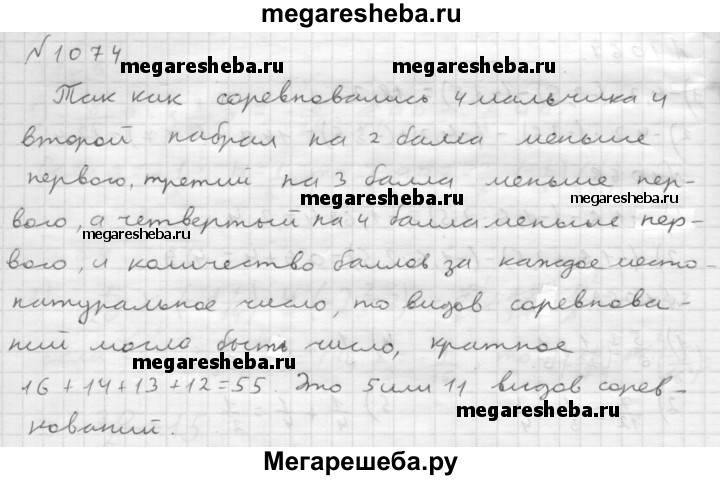 megaresheba.ru
N 1074
megaresheba.ru megaresheba.ru
Так как соревновались 4 мальчика и
второй набрал на 2 балла меньше
первого, третий на 3 балла меньше пер-
megaresheba.ru
вого, а четвертый на 4 балла меньше пер-
megaresheba.ru megaresheba.ru
вого, и количество баллов за каждое место
натуральное число, то видов соревнова-
ний могло быть число, кратное
megaresheba.ru
16 + 14 + 13 + 12 = 55. Это 5 или 11 видов сорев-
megaresheba.ru
нований.
Мегарешеба.ру